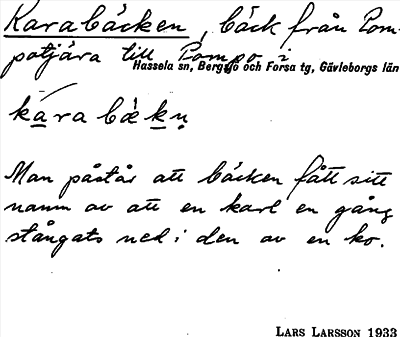 Karabäcken, bäck från Pom-
potjära till Pompo i
Hassela sn, Bergsjö och Forsa tg, Gävleborgs län
kara bækn
Man påstår att bäcken fått sitt
namn av att en karl en gång
stångats ned i den av en ko.
LARS LARSSON 1933